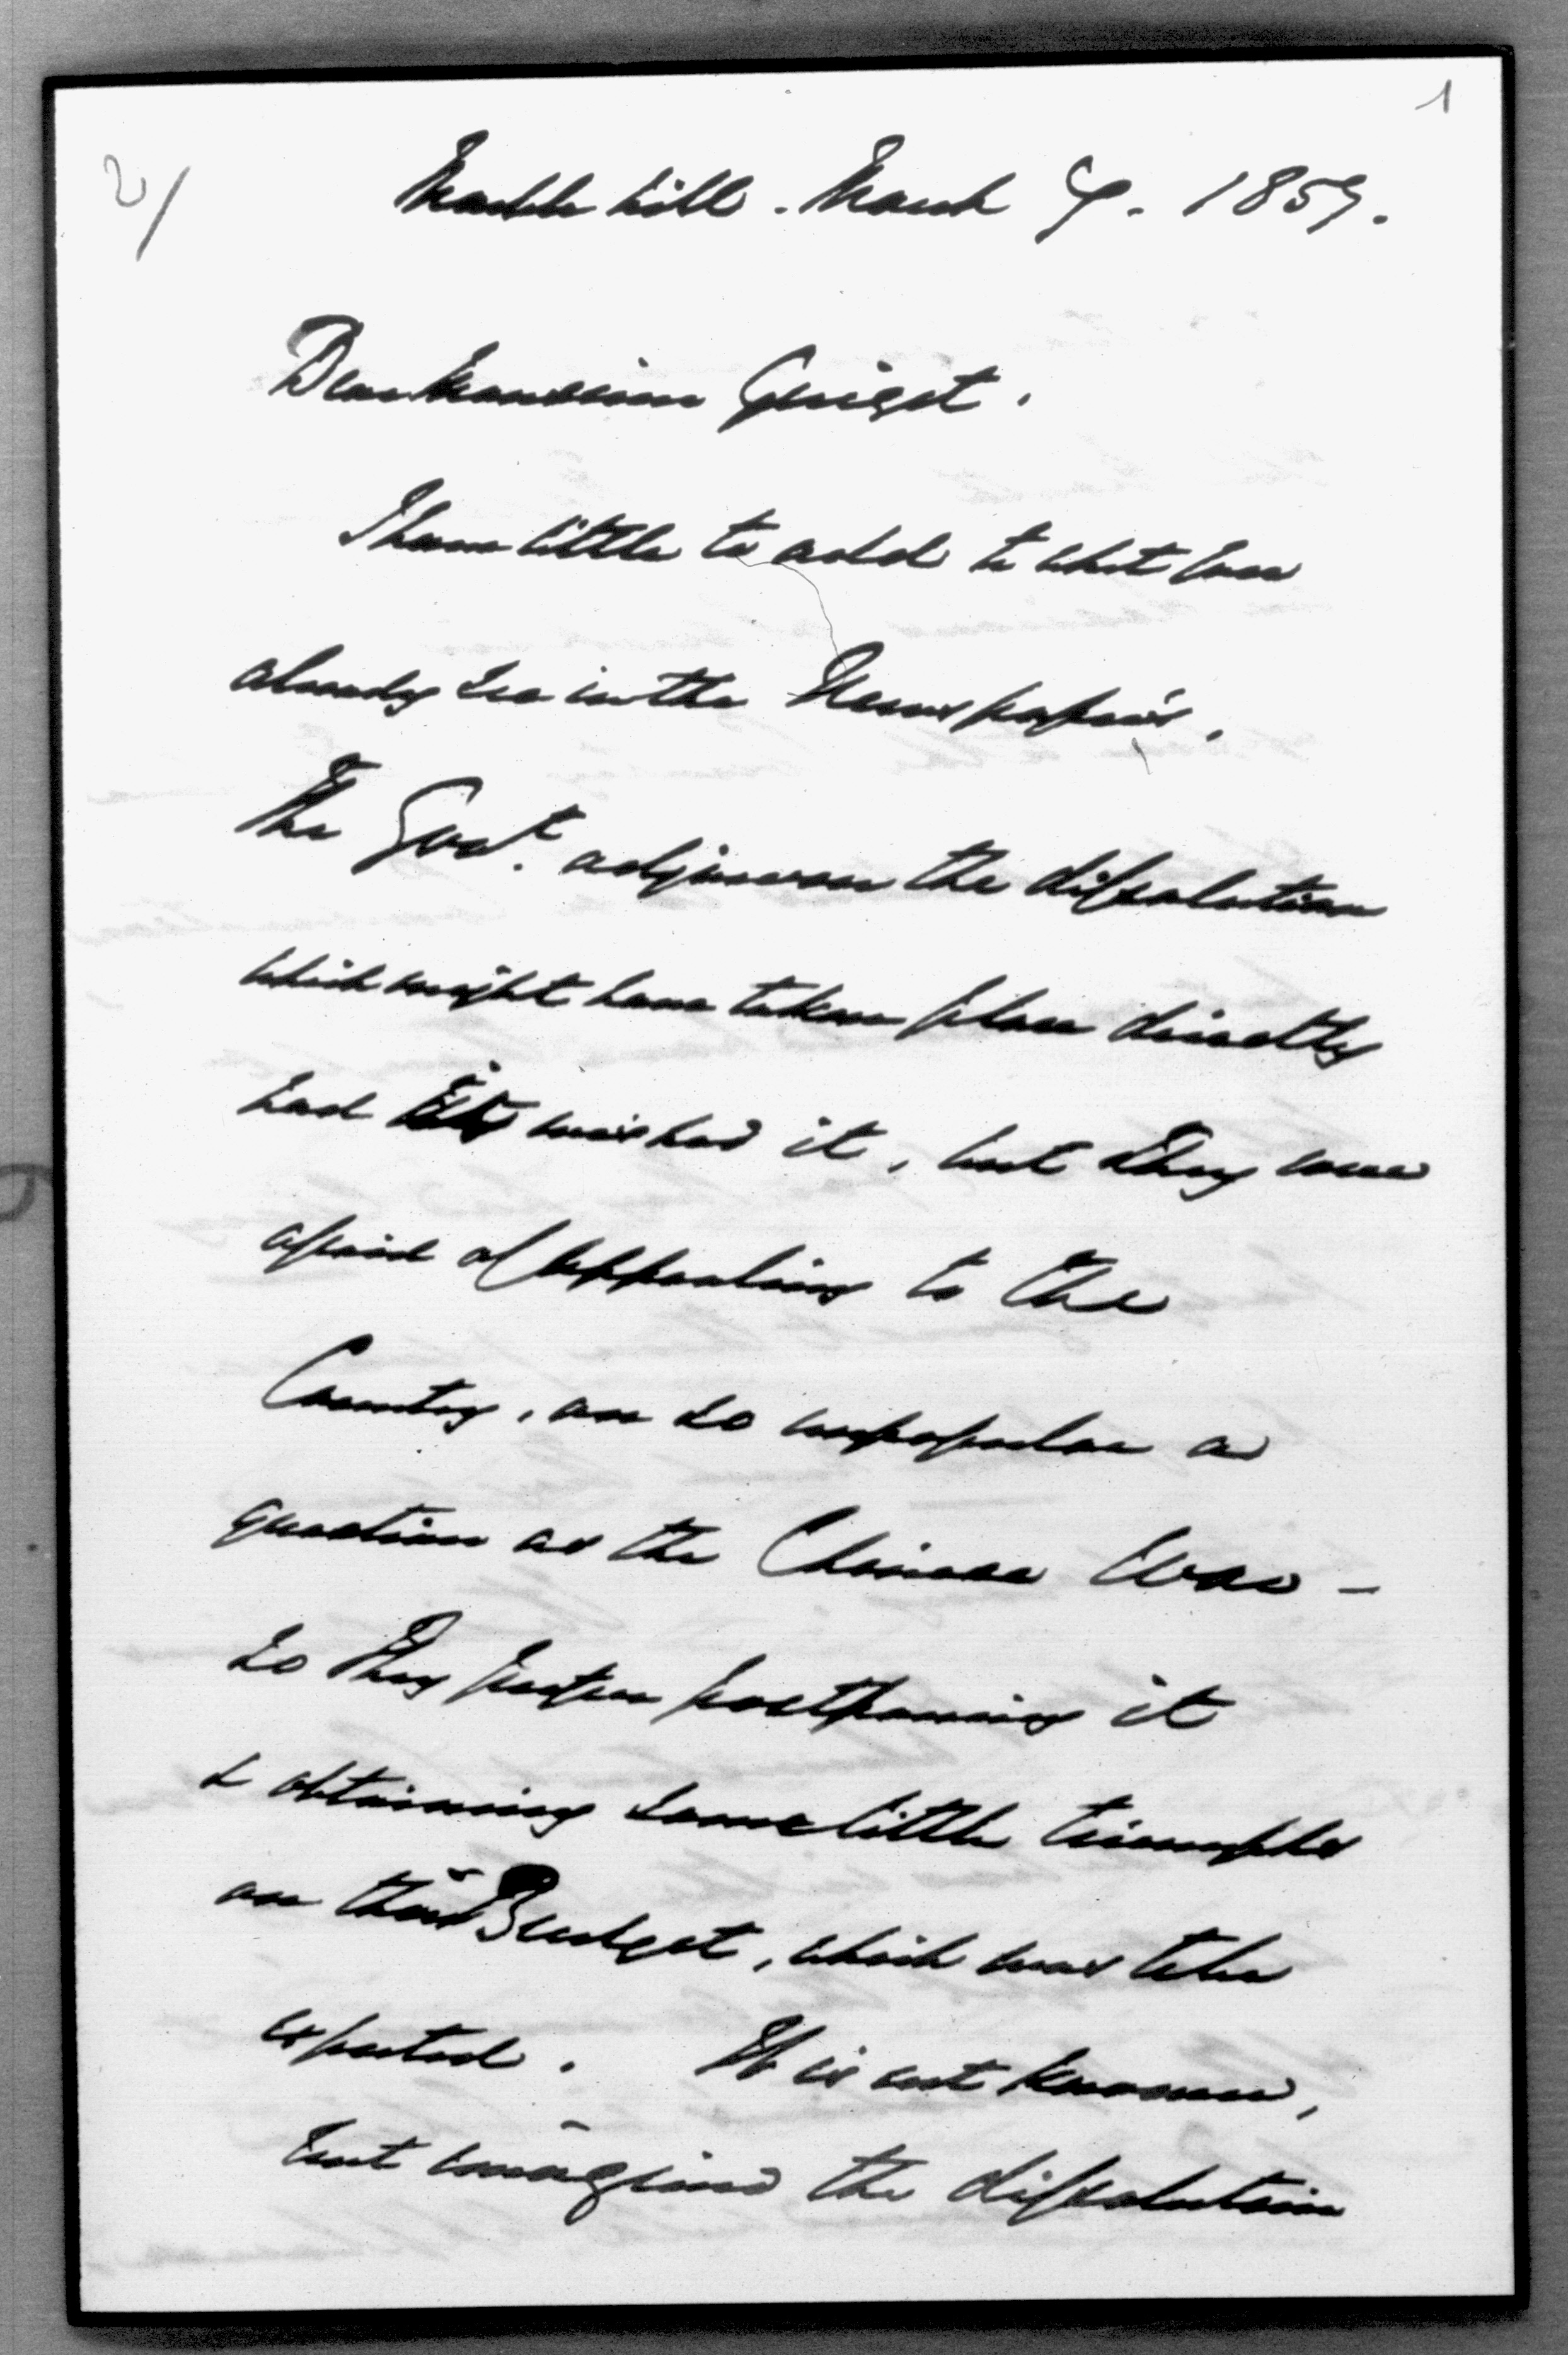 1
2/
Marble hill. March 9. 1857.
Dear Monsieur Guizot.
I have little to add to what you
already see in the Newspapers.
The Govt. adjourn the dissolution
which might have taken place directly
had they wished it, but they were
afraid of appealing to the
Country, on so unpopular a
question as the Chinese War –
so they prefer postponing it
& obtaining some little triumphs
on their Budget, which was to be
expected. It is not known,
but imagined the dissolution